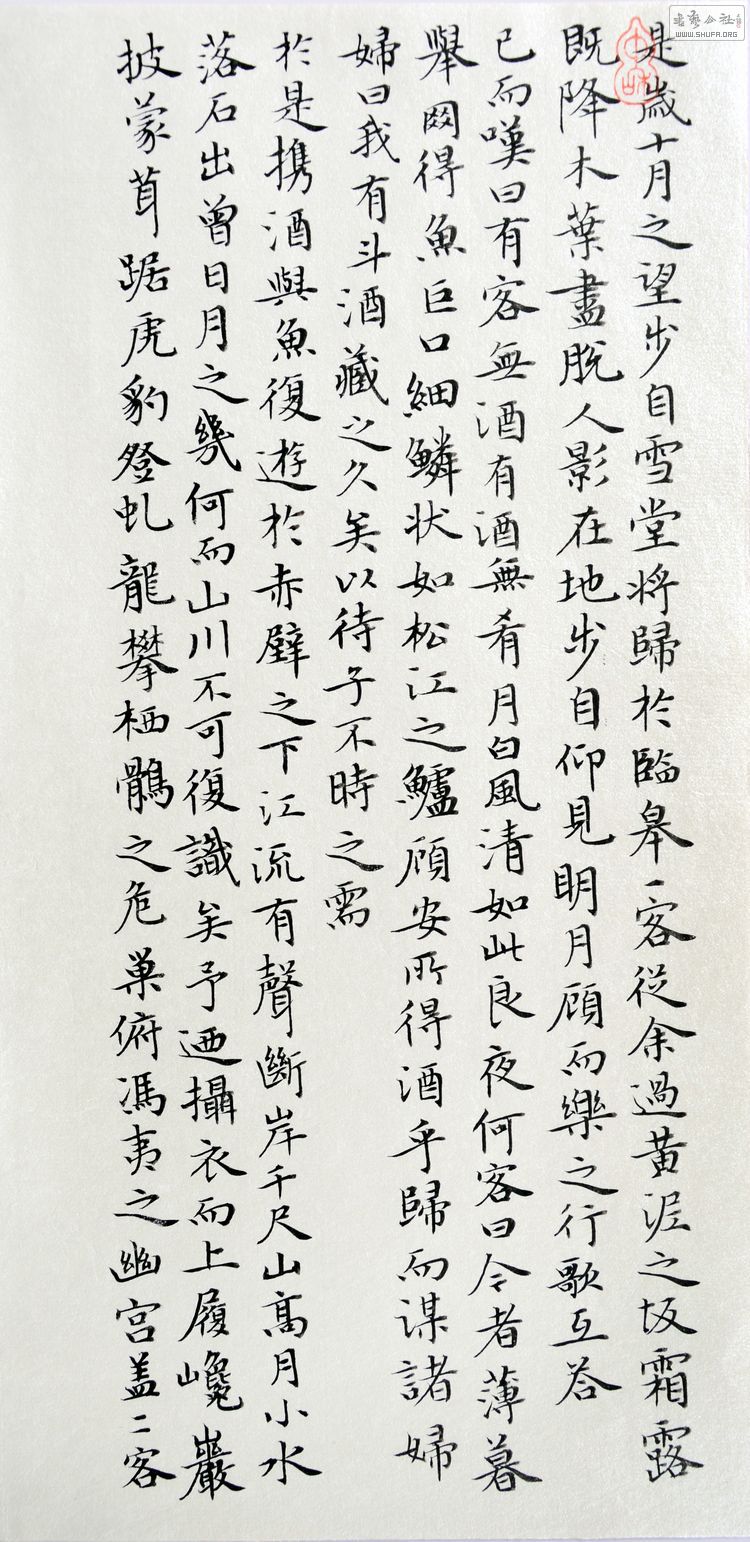 是歲十月之望步自雪堂將歸於臨皋一客從余過黄泥之坂霜露
既降木葉盡脫人影在地步自仰見明月顧而樂之行歌互答
已而嘆曰有客無酒有酒無肴月白風清如此良夜何客曰今者薄暮
舉网得魚巨口細鱗狀如松江之鱸顧安所得酒乎歸而謀諸婦
婦曰我有斗酒藏之久矣以待子不時之需
於是携酒與魚復遊於赤壁之下江流有聲斷岸千尺山高月小水
落石出曾日月之幾何而山川不可復識矣予迺攝衣而上履巉巖
披蒙茸踞虎豹登虬龍攀栖鶻之危巢俯馮夷之幽宫盖二客
書藝公社
WWW.SHUFA.ORG